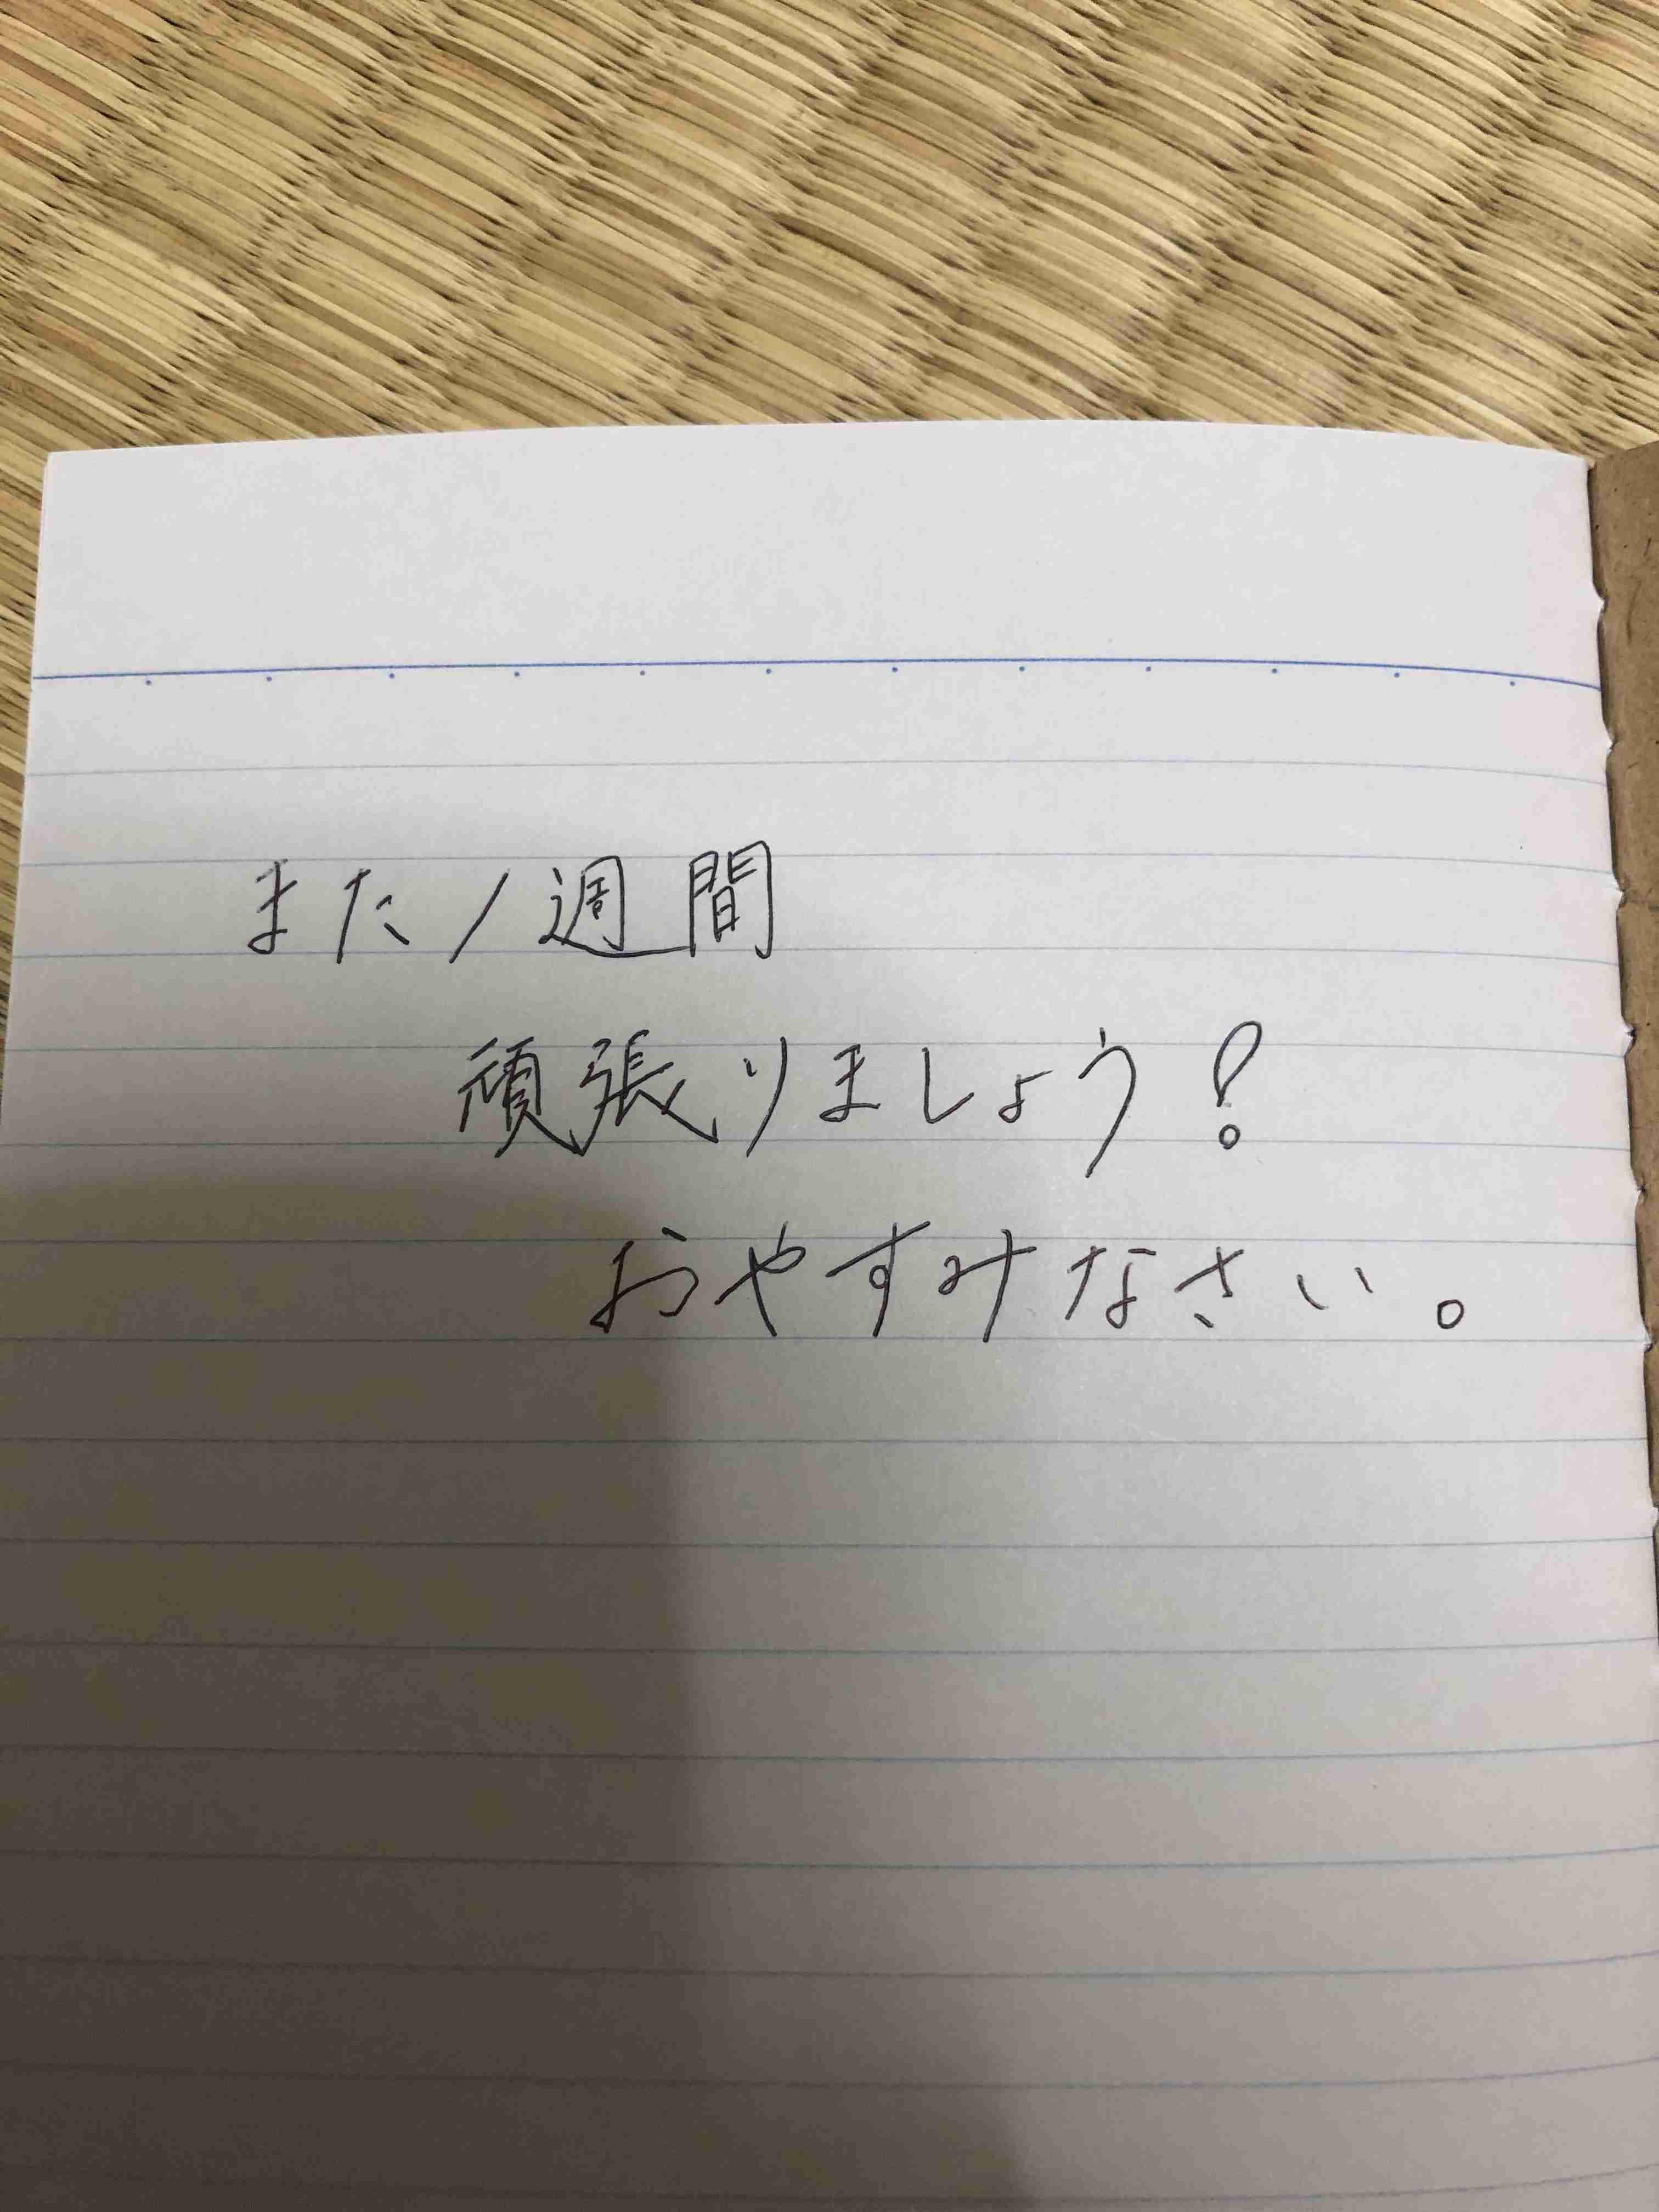 また1週間
頑張りましょう!
おやすみなさい。